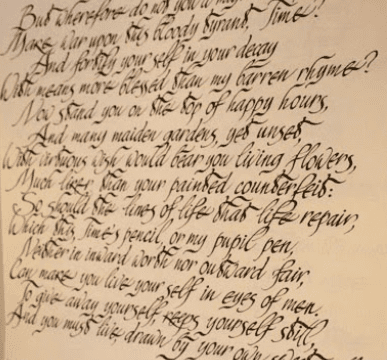 But wherefore do not you a
Make war upon this bloody tyrant, Time?
And fortify your self in your decay
With means more blessed than my barren rhyme?
Now stand you on the top of happy hours,
And many maiden gardens, yet unset,
With virtuous wish would bear you living flowers,
Much liker than your painted counterfeit:
So should the lines of life that life repair,
Which this, Time's pencil, or my pupil pen,
Neither in inward worth nor outward fair,
Can make you live your self in eyes of men.
To give away yourself, keeps yourself still,
And you must live drawn by your own